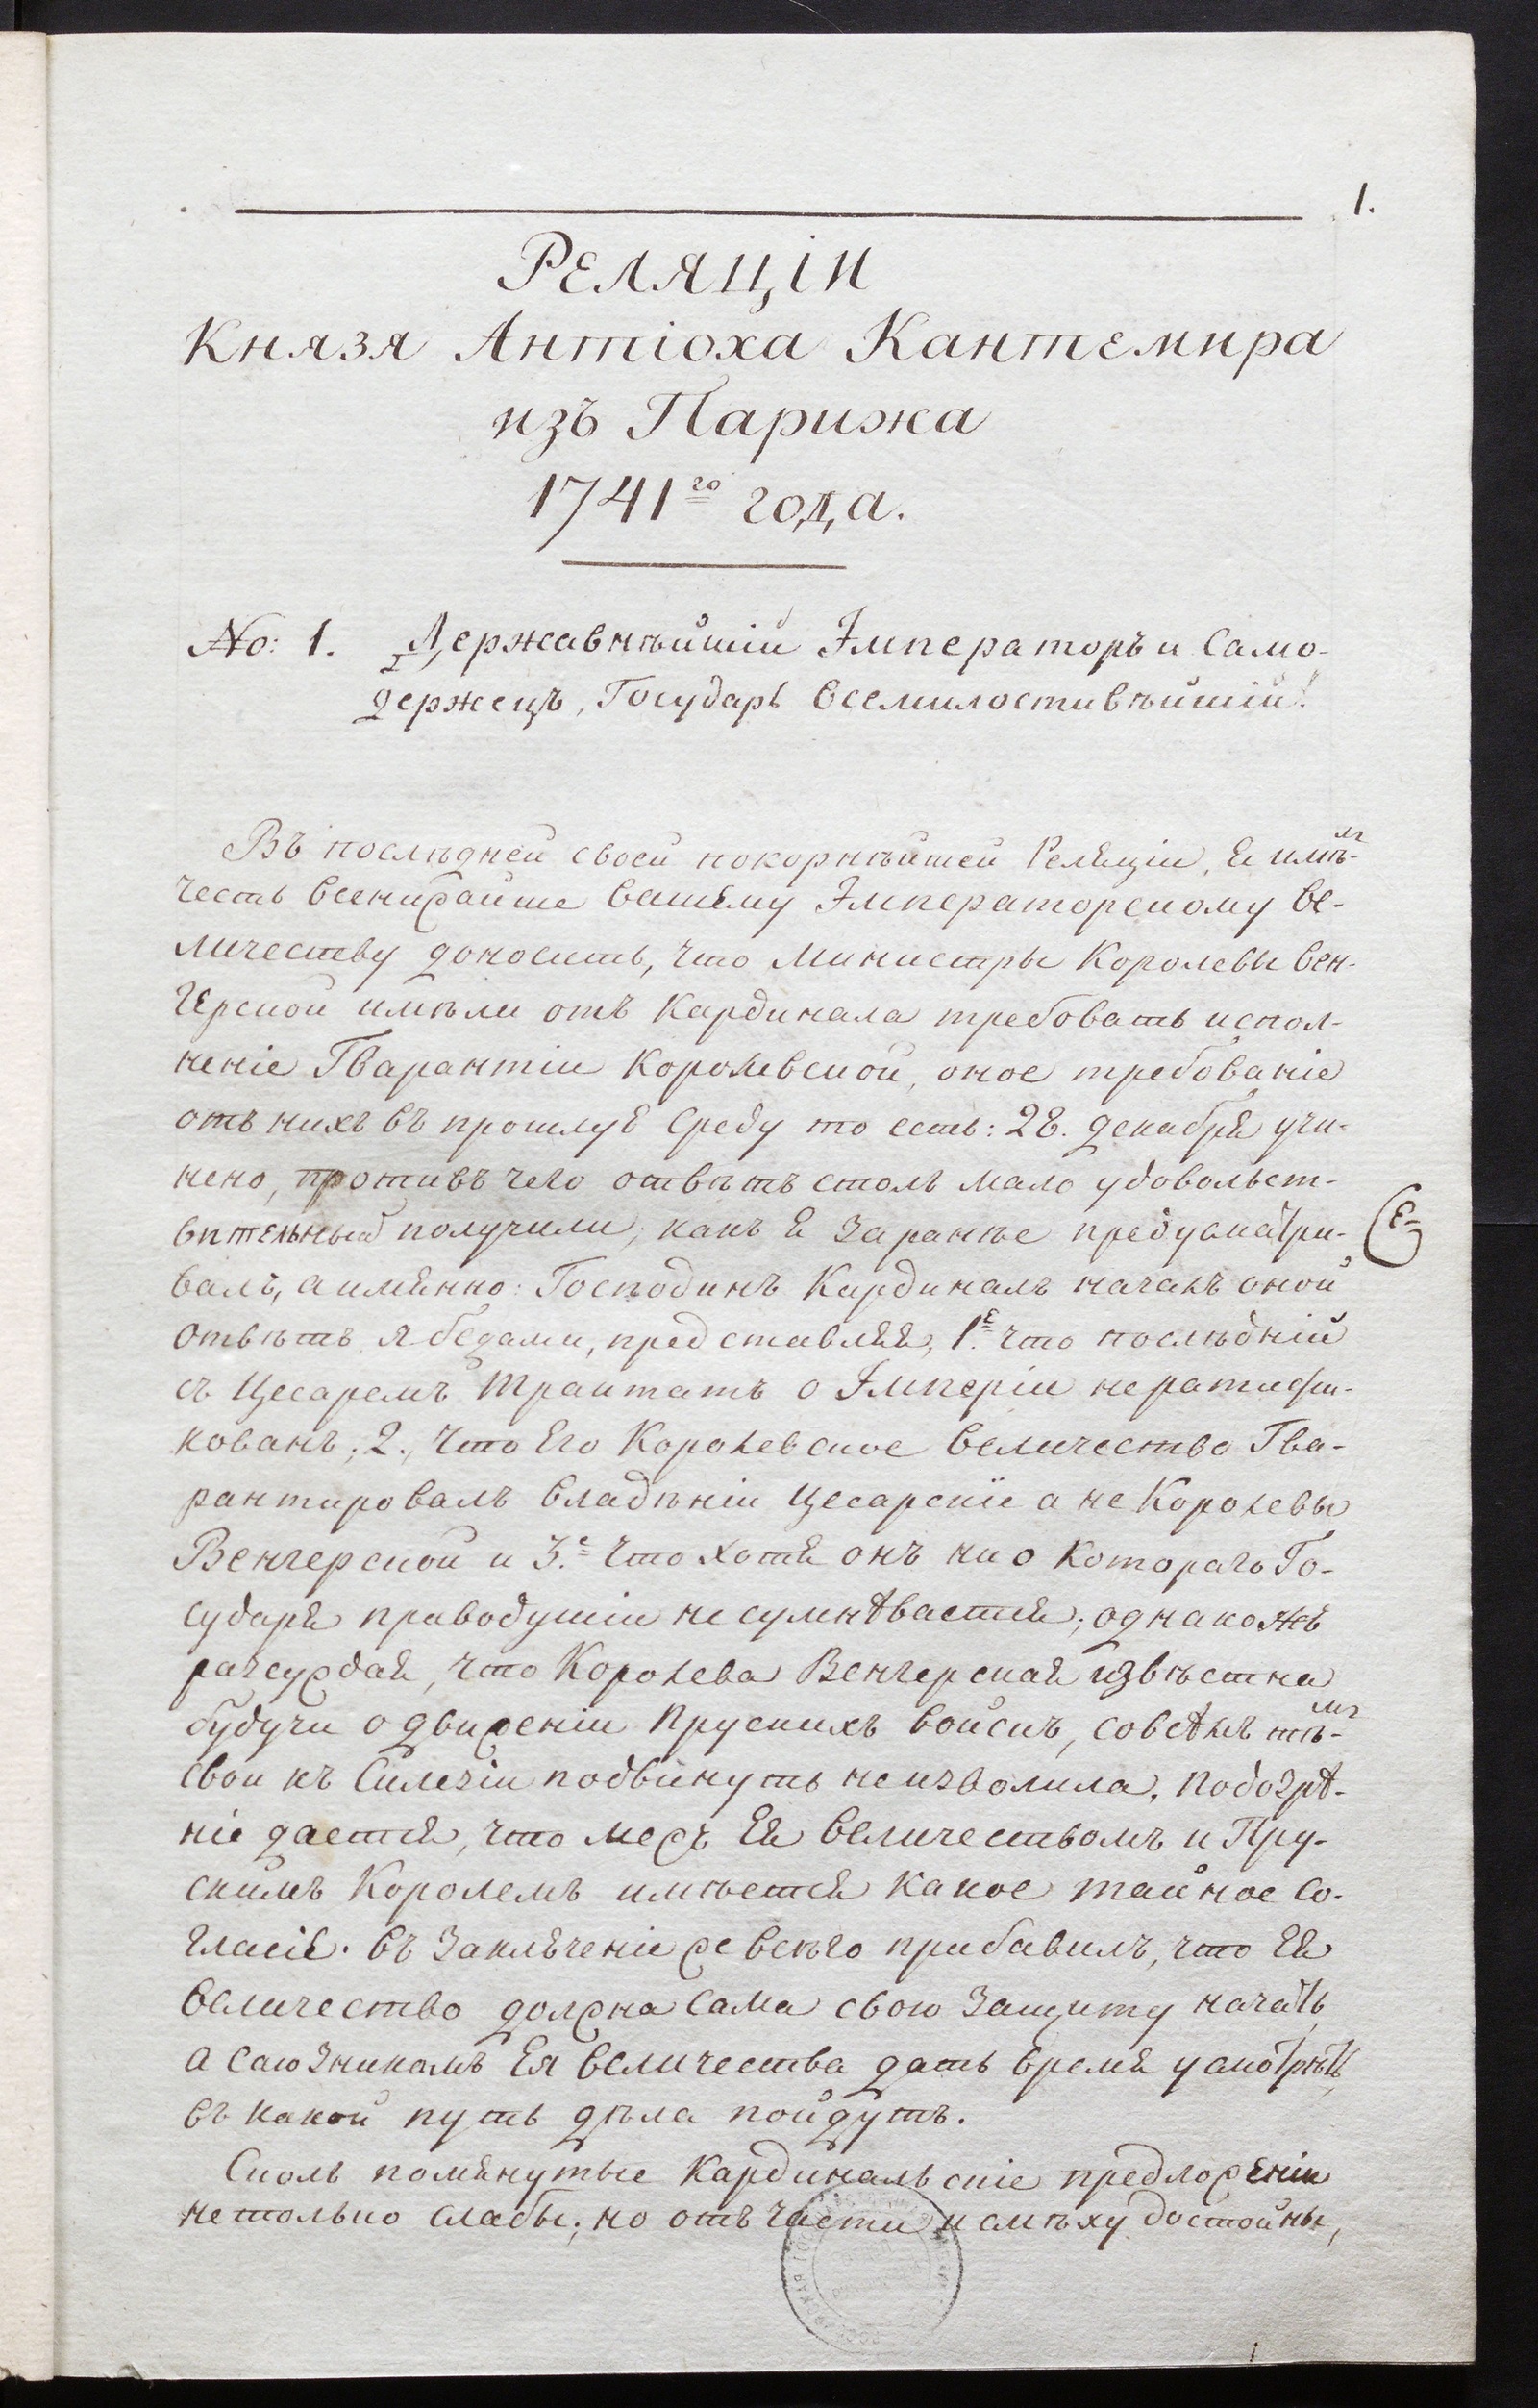 1.
Реляціи
Князя Антіоха Кантемира
изъ Парижа
1741го года.
No: 1. Державнѣйшій Императоръ и Само-
держецъ, Государь Всемилостивѣйшій!
Въ послѣдней своей покорнѣйшей Реляціи, я имѣлъ
честь всенижайше вашему Императорскому Ве-
личеству доносить, что Министры Королевы Вен-
герской имѣли отъ Кардинала требовать испол-
неніе Гварантіи Королевской, оное требованіе
отъ нихъ въ прошлую среду то есть: 28. декабря учи-
нено, противъ чего отвѣтъ столь мало удовольст-
вительный получили, какъ я заранѣе предусматри-
валъ, а имянно: Господинъ Кардиналъ началъ оной
отвѣтъ ябедами, представляя, 1е. что послѣдній
съ Цесаремъ трактатъ о Имперіи нератифи-
кованъ; 2., что Его Королевское Величество Гва-
рантировалъ владѣніи Цесарскіе а не Королевы
Венгерской и 3е. что хотя онъ ни о котораго Го-
сударя праводушіи несумнѣвается; однакожъ
разсуждая, что Королева Венгерская извѣстна
будучи о движеніи Прускихъ войскъ, совсѣмъ тѣмъ
свои къ Силезіи подвинуть неизволила, подозрѣ-
ніе дается, что межъ Ея Величествомъ и Пру-
скимъ Королемъ имѣется какое тайное со-
гласіе. въ заключеніе же всего прибавилъ, что Ея
Величество должна сама свою защиту начать,
а саюзникамъ Ея Величества дать время усмотрѣть,
въ какой путь дѣла пойдутъ.
Сколь помянутые Кардинальскіе предложеніи
нетолько слабы; но отъ части и смѣху достойны,